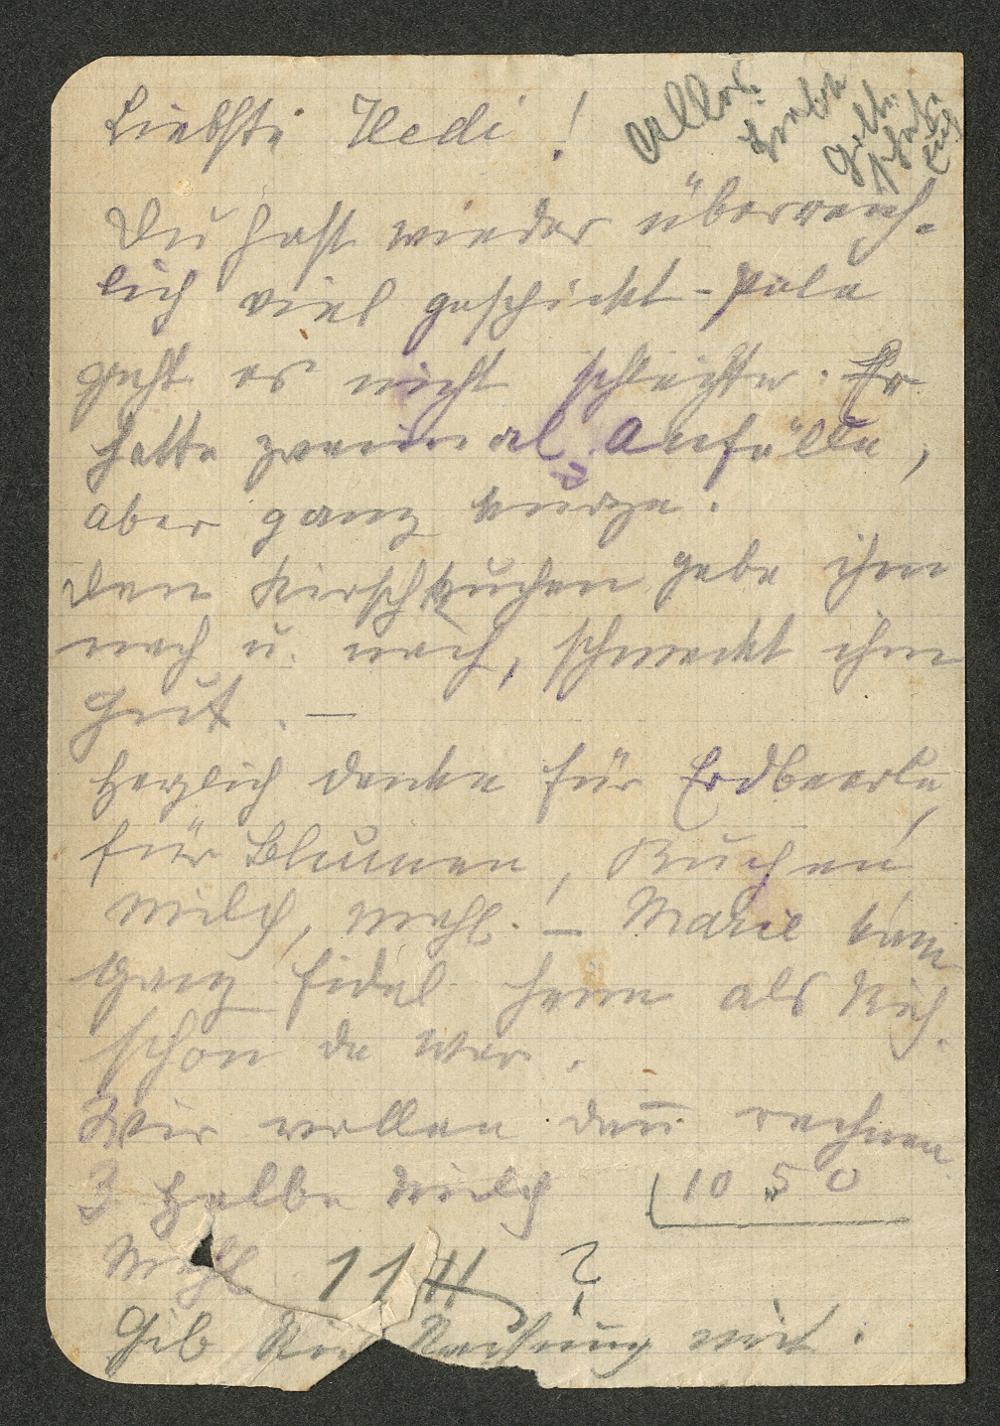 Liebste Hedi!
Du hast wieder überreich-
lich viel geschickt - Pola
geht es nicht schlechter. Er
hatte zweimal Anfälle,
aber ganz kurze.
Den Kirschkuchen gebe ihm
nach u. nach, schmeckt ihm
gut. —
Herzlich danke für Erdbeerle,
für Blumen, Kuchen
Milch, Mehl. — Marie kam
ganz fidel heim als Rich.
schon da war.
Wir wollen dann rechnen
3 Halbe Milch 10 50
Mehl 11 ?
Gib Rich Rechnung mit.